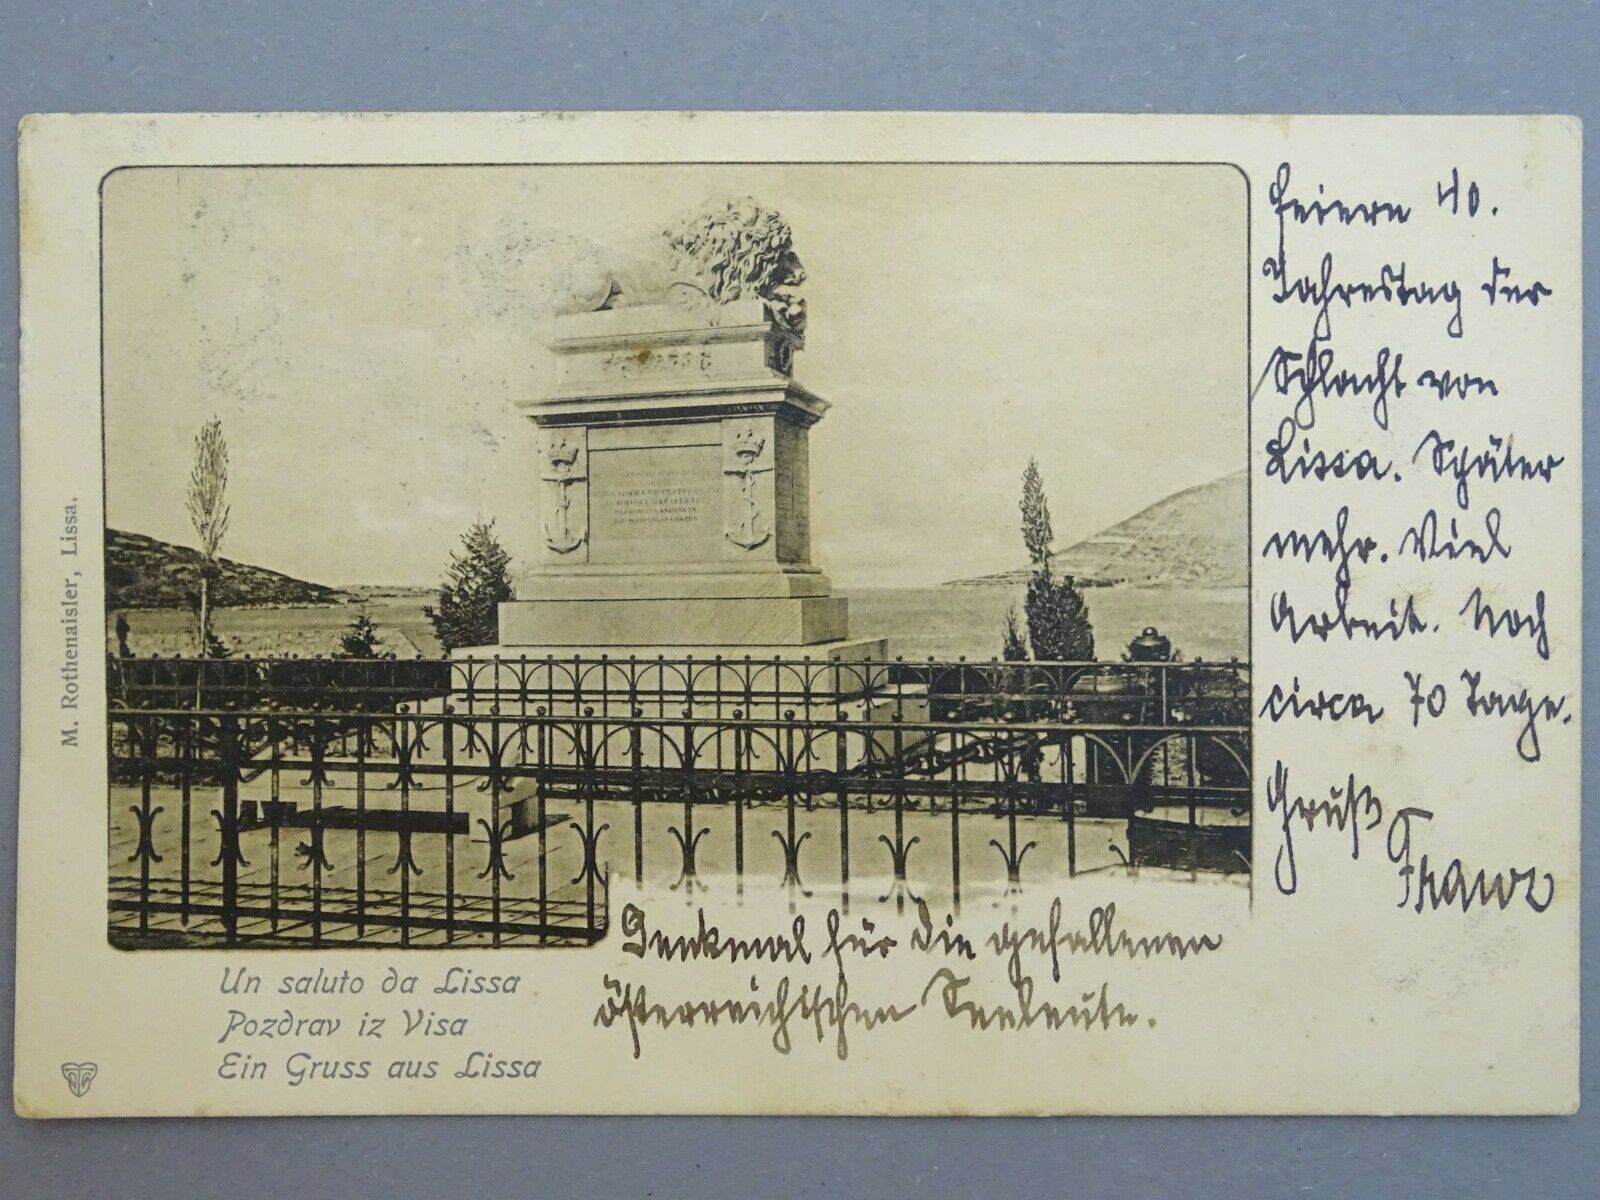 feiern 40.
Jahrestag der
Schlacht von
Lissa. Später
mehr. Viel
Arbeit. Noch
circa 70 Tage.
Gruß
Franz
Denkmal für die gefallenen
österreichischen Seeleute.
Un saluto da Lissa
Pozdrav iz Visa
Ein Gruss aus Lissa
M. Rothenaisler, Lissa.